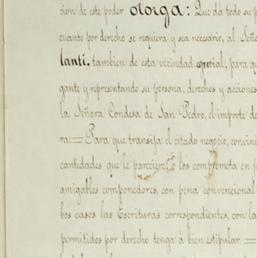 cion de este poder otorga: Que dá todo su p
cuanto por derecho se requiera y sea necesario, al Seño
lanti. tambien de esta vecindad especial, para q
gante y representando su persona, derechos y acciones
la Señora Condesa de San Pedro, el importe de
ra:= Para que transija el citado negocio, convini
cantidades que le parecieren, ó los comprometa en j
amigables componedores, con pena convencional
bos casos las Escrituras correspondientes, con la
permitidos por derecho tenga á bien estipular.=